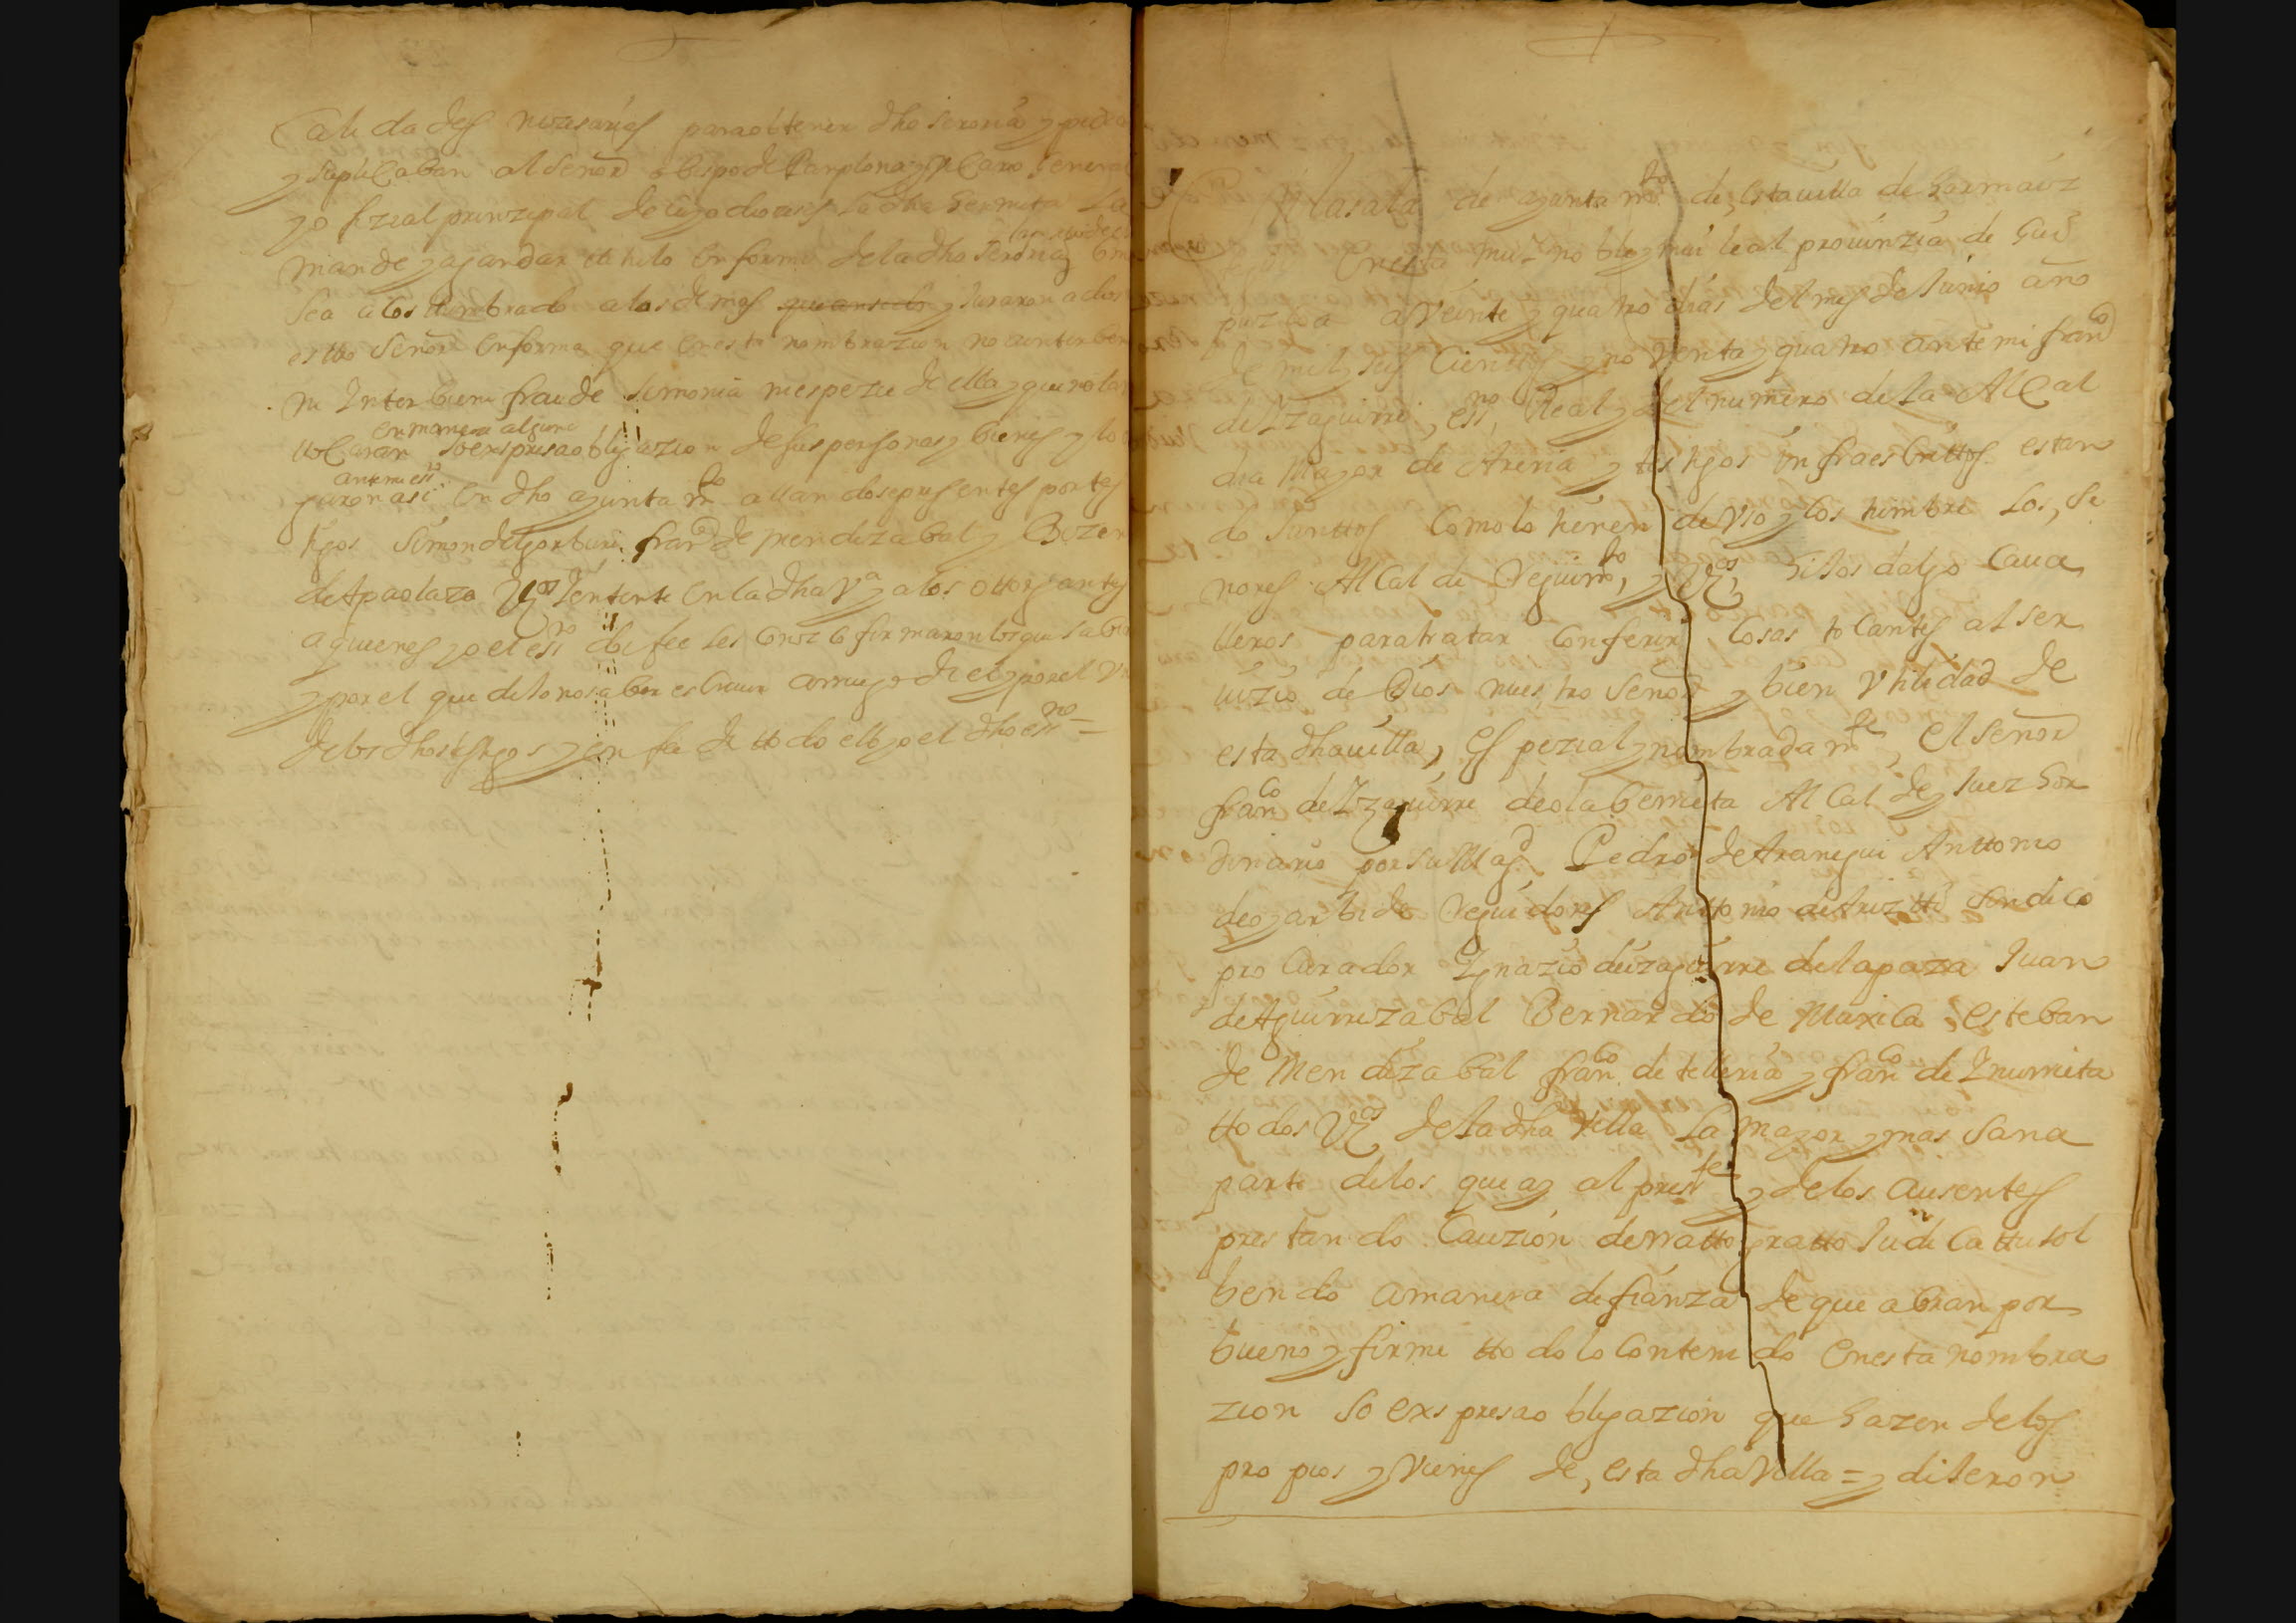 Calidades nezesarias para obtener dho seroria y pedian
y suplicaban al señor obispo de Panplona y su Vicario General
y ofizial prinzipal de cuya diozesis la dha hermita la
mande y aga dar titulo en forma de la dha seroria
sea acostumbrado a las demas que an sido y juraron a dios
nro Señor en forma que en esta nombrazion no a interben
ni Interbiene fraude simonia ni espezie de ella y que no la re
en manera alguna
bocaran so expresa obligazion de sus personas y bienes y lo
ante mi essno
otorgaron asi en dho ayuntamto allandose presentes por tes
tigos Simon de franco de mendizabal y
de Apaolaza Vos y en la dha Va y a los ottorgantes
a quienes yo el essno doi fee les conozco firmaron los que sabian
y por el que dixo no saber escriuir a rruego de el y por el Vn
de los dhos tstigos y en fe de ttodo ello yo el dho essno =
En la sala de ayuntamto de, esta uilla de Gormaiz
En esta mui noble y mui leal prouinzia de Gui
puzcoa a veinte y quatro dias del mes de Junio año
de mil y seis Cienttos y nobenta y quatro ante mi franco
de Yzaguirre, essno, Real y del numero de la Alcal
dia Mayor de Areria y testigos infraescrittos estan
do Junttos Como lo tienen de vso y costumbre Los, Se
nores Alcalde Regimto, y Vos, hijos dalgo Caua
lleros para tratar Conferir Cosas tocantes al ser
uizio de Dios nuestro Señor y bien vtilidad de
esta dha uilla, espezial y nombradamte, El Señor
franco de Yzaguirre de olaberrieta Alcalde y Juez hor
dinario por su Magd Pedro de Aranegui Anttonio
de oyarbide Regidores Anttonio de Ariztti Sindico
procurador Ygnazio de izaguirre de lapaza Juan
de Aguirrezabal Bernardo de Muxica esteban
de Mendizabal franco de telleria y franco de Ynurrieta
ttodos Vos de la dha Villa la mayor y mas Sana
parte de los que ay al preste y de los ausentes
prestando Cauzion de rratto gratto Judicattu sol
bendo a manera de fianza de que abran por
bueno y firme ttodo lo Contenido en esta nombra
zion so expresa obligazion que hazen de los
propios y vienes de, esta dha Villa = y dijeron